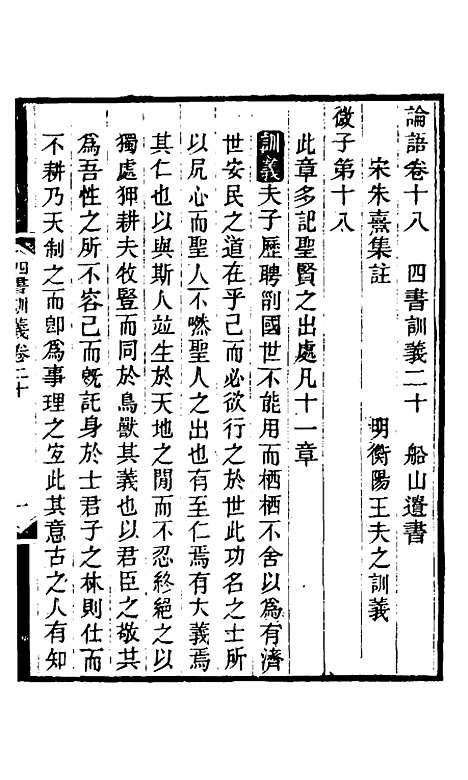 論語卷十八　四書訓義二十　船山遺書
宋朱熹集註　明衡陽王夫之訓義
微子第十八
此章多記聖賢之出處凡十一章
訓義夫子歷聘列國世不能用而栖栖不舍以爲有濟
世安民之道在乎己而必欲行之於世此功名之士所
以尻心而聖人不嘫聖人之出也有至仁焉有大義焉
其仁也以與斯人竝生於天地之閒而不忍終絕之以
獨處狎耕夫牧豎而同於鳥獸其義也以君臣之敬其
爲吾性之所不容已而旣託身於士君子之林則仕而
不耕乃天制之而卽爲事理之宐此其意古之人有知
四書訓義卷二十
一